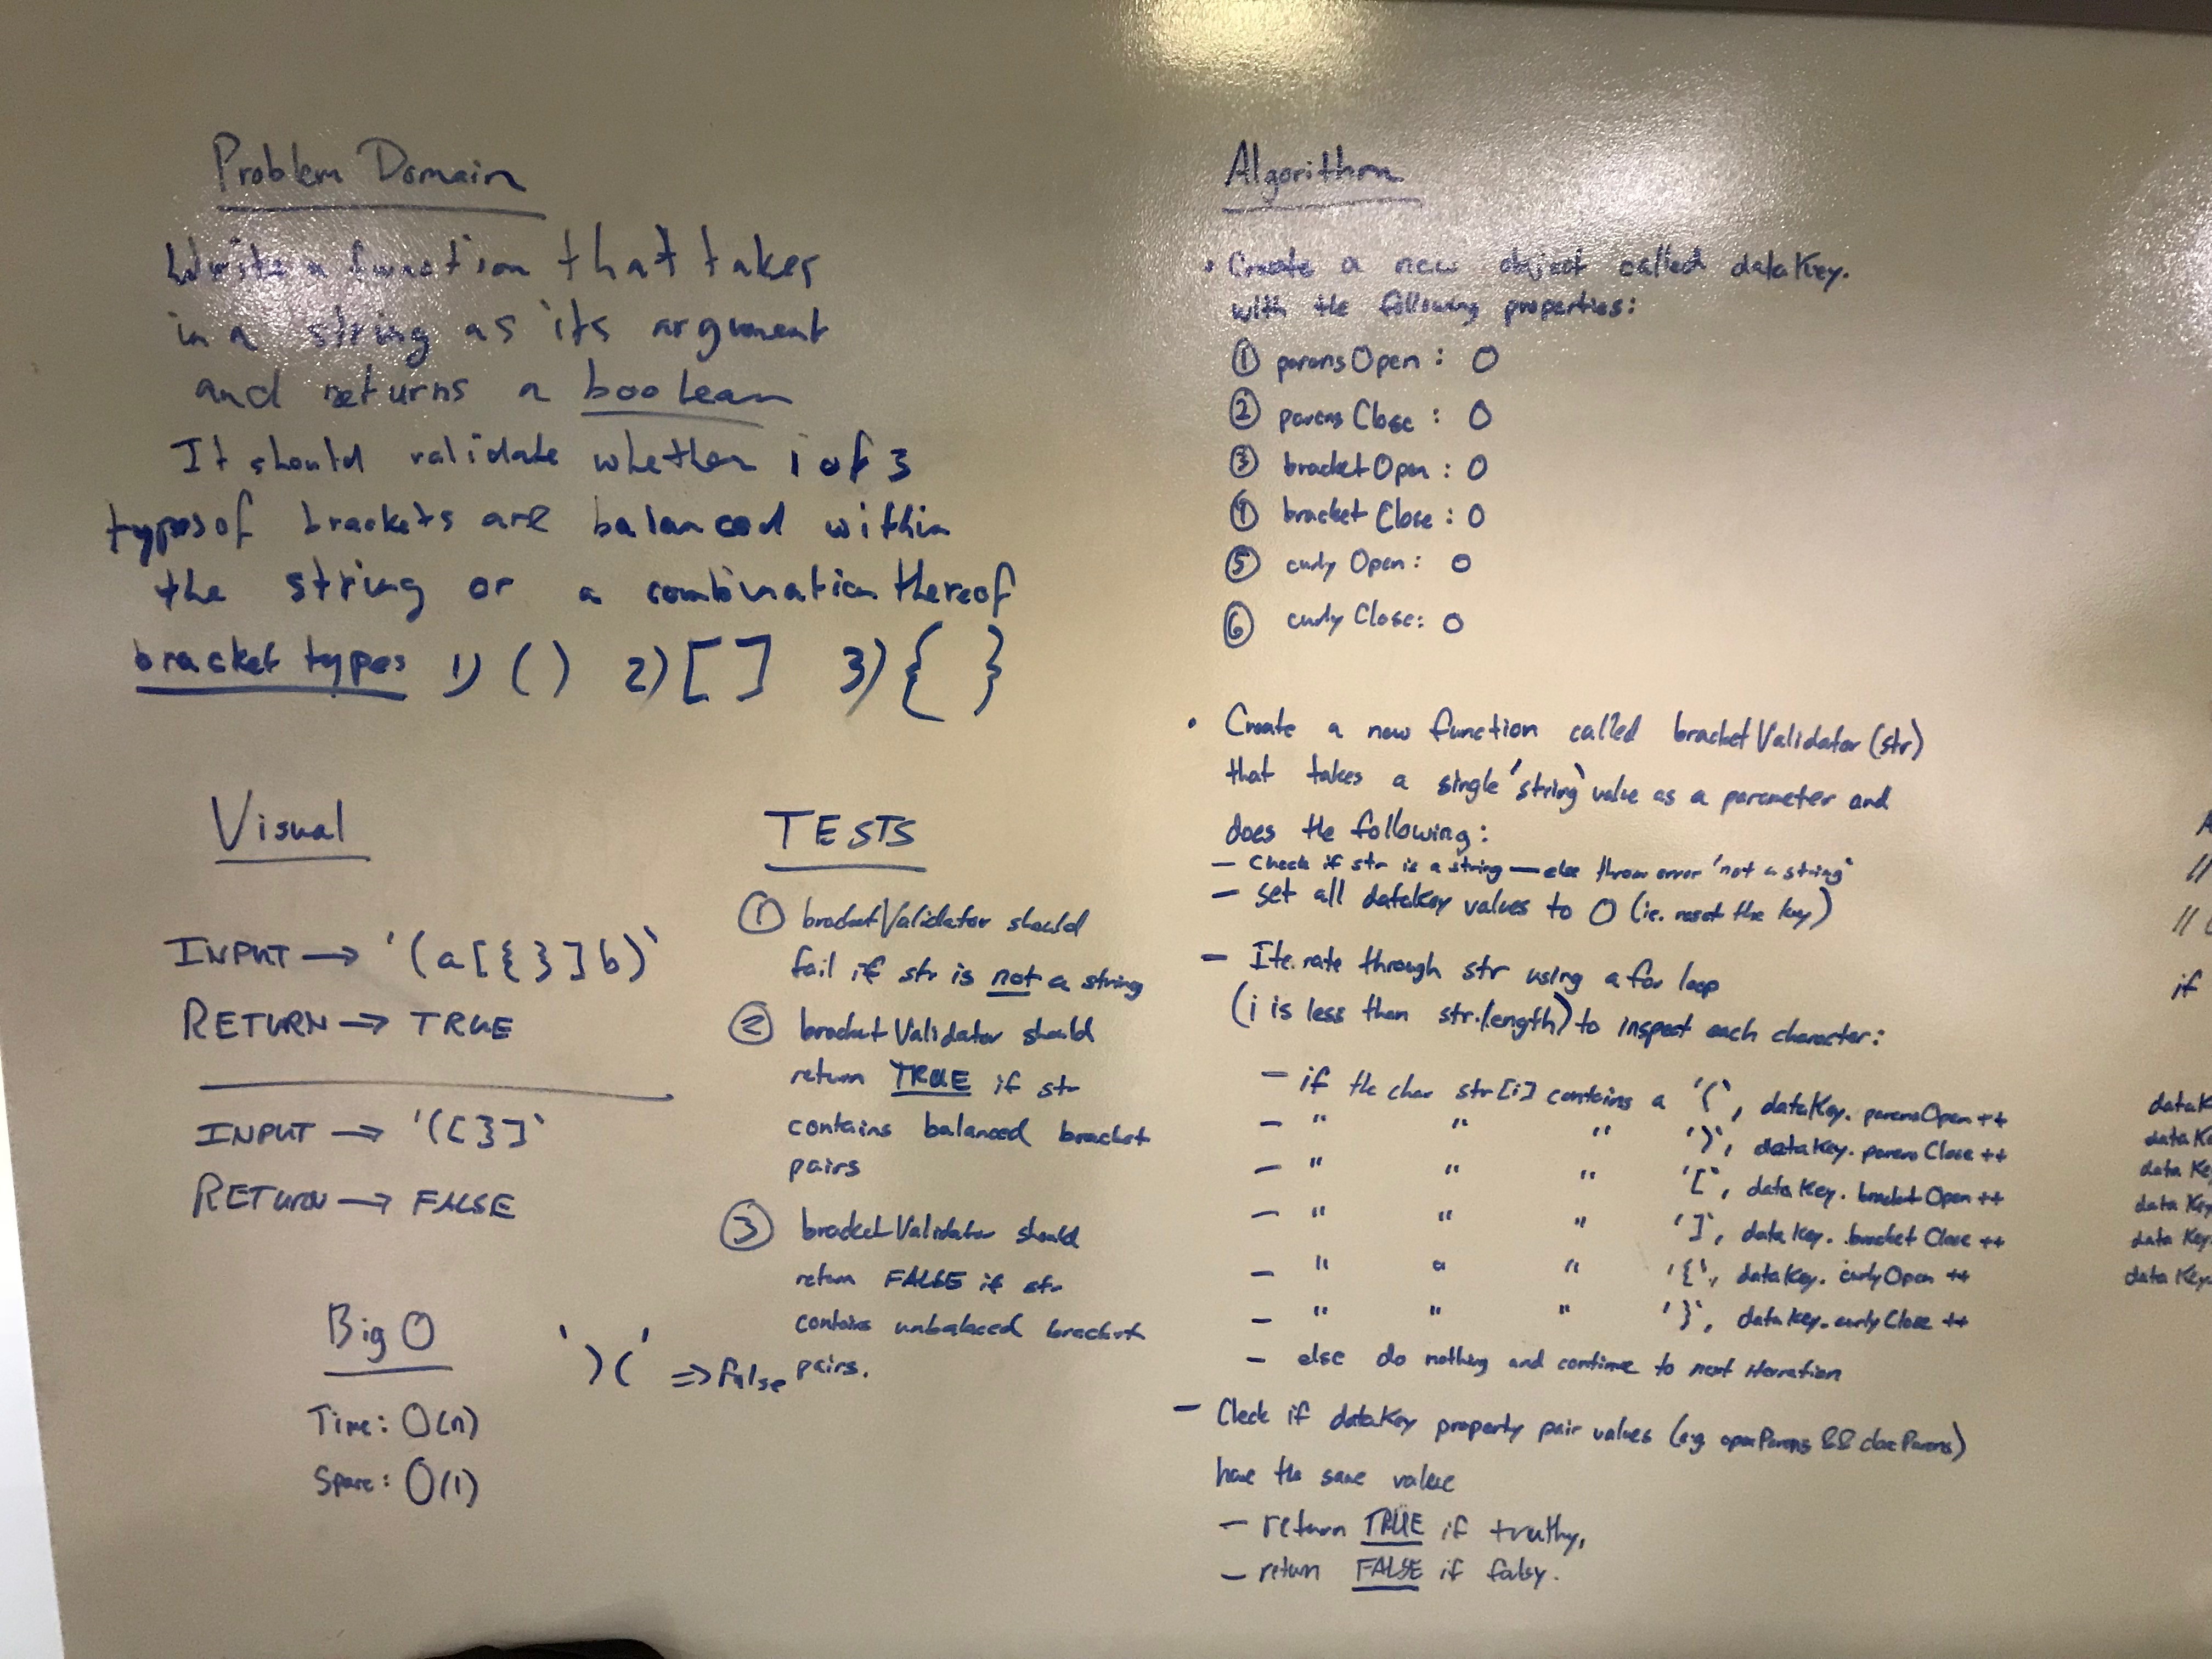 Problem Domain
Write a function that takes
in a string as its argument
and returns a boolean
It should validate whether 1 of 3
types of brackets are balanced within
the string or a combination thereof
bracket types 1) ( ) 2) [ ] 3) { }
Visual
INPUT → '(a[{}]b)'
RETURN → TRUE
INPUT → '([}]'
RETURN → FALSE
Big O
Time: O(n)
Space: O(1)
')(' => false
TESTS
① bracketValidator should
fail if str is not a string
② bracketValidator should
return TRUE if str
contains balanced bracket
pairs
③ bracketValidator should
return FALSE if str
contains unbalanced bracket
pairs.
Algorithm
• Create a new object called dataKey.
with the following properties:
① parensOpen : 0
② parensClose : 0
③ bracketOpen : 0
④ bracketClose : 0
⑤ curlyOpen : 0
⑥ curlyClose: 0
• Create a new function called bracketValidator(str)
that takes a single 'string' value as a parameter and
does the following:
— Check if str is a string — else throw error 'not a string'
— set all dataKey values to 0 (ie. reset the key)
— Iterate through str using a for loop
(i is less than str.length) to inspect each character:
— if the char str[i] contains a '(', dataKey.parensOpen++
— " " " ')', dataKey.parensClose++
— " " " '[', dataKey.bracketOpen++
— " " " ']', dataKey.bracketClose++
— " " " '{', dataKey.curlyOpen++
— " " " '}', dataKey.curlyClose++
— else do nothing and continue to next iterration
— Check if dataKey property pair values (eg openParens && closeParens)
have the same value
— return TRUE if truthy,
— return FALSE if falsy.
//
//
if
dataK
dataKe
dataKe
dataKey
dataKey
dataKey